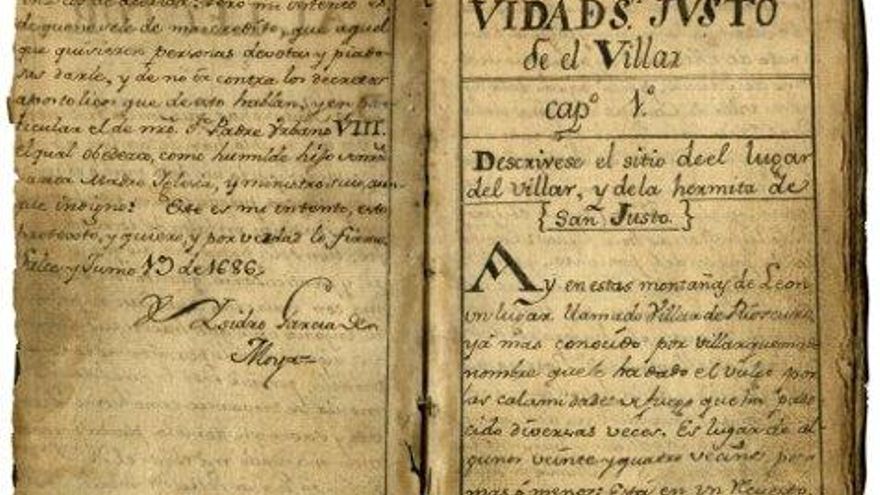 de que no se le mas credito, que aquel
que quisieren personas devotas y piado-
sas darle, y de no ir contra los decretos
apostolicos que de esto hablan, y en par-
ticular el de nrõ. Sº Padre Urbano VIII.
el qual obedezco, como humilde hijo
Madre Iglesia, y ministro suio, aun-
que indigno: Este es mi intento, esto
protexto, y quiero, y por verdad lo firmo.
y Junio 19 de 1686.
Isidro Garcia de
Moya
VIDA D S. JVSTO
de el Villar
capº 1º.
Descrivese el sitio de el lugar
del villar, y de la hermita de
{San Justo.}
Ay en estas montañas de Leon
un lugar llamado Villar de Rioscuro,
yá mas conocido por villarquemado
nombre que le ha dado el vulgo por
las calamidades de fuego que ha pade-
cido diversas veces. Es lugar de al-
gunos veinte y quatro vecinos poco
mas ó menos: Está en un recuesto